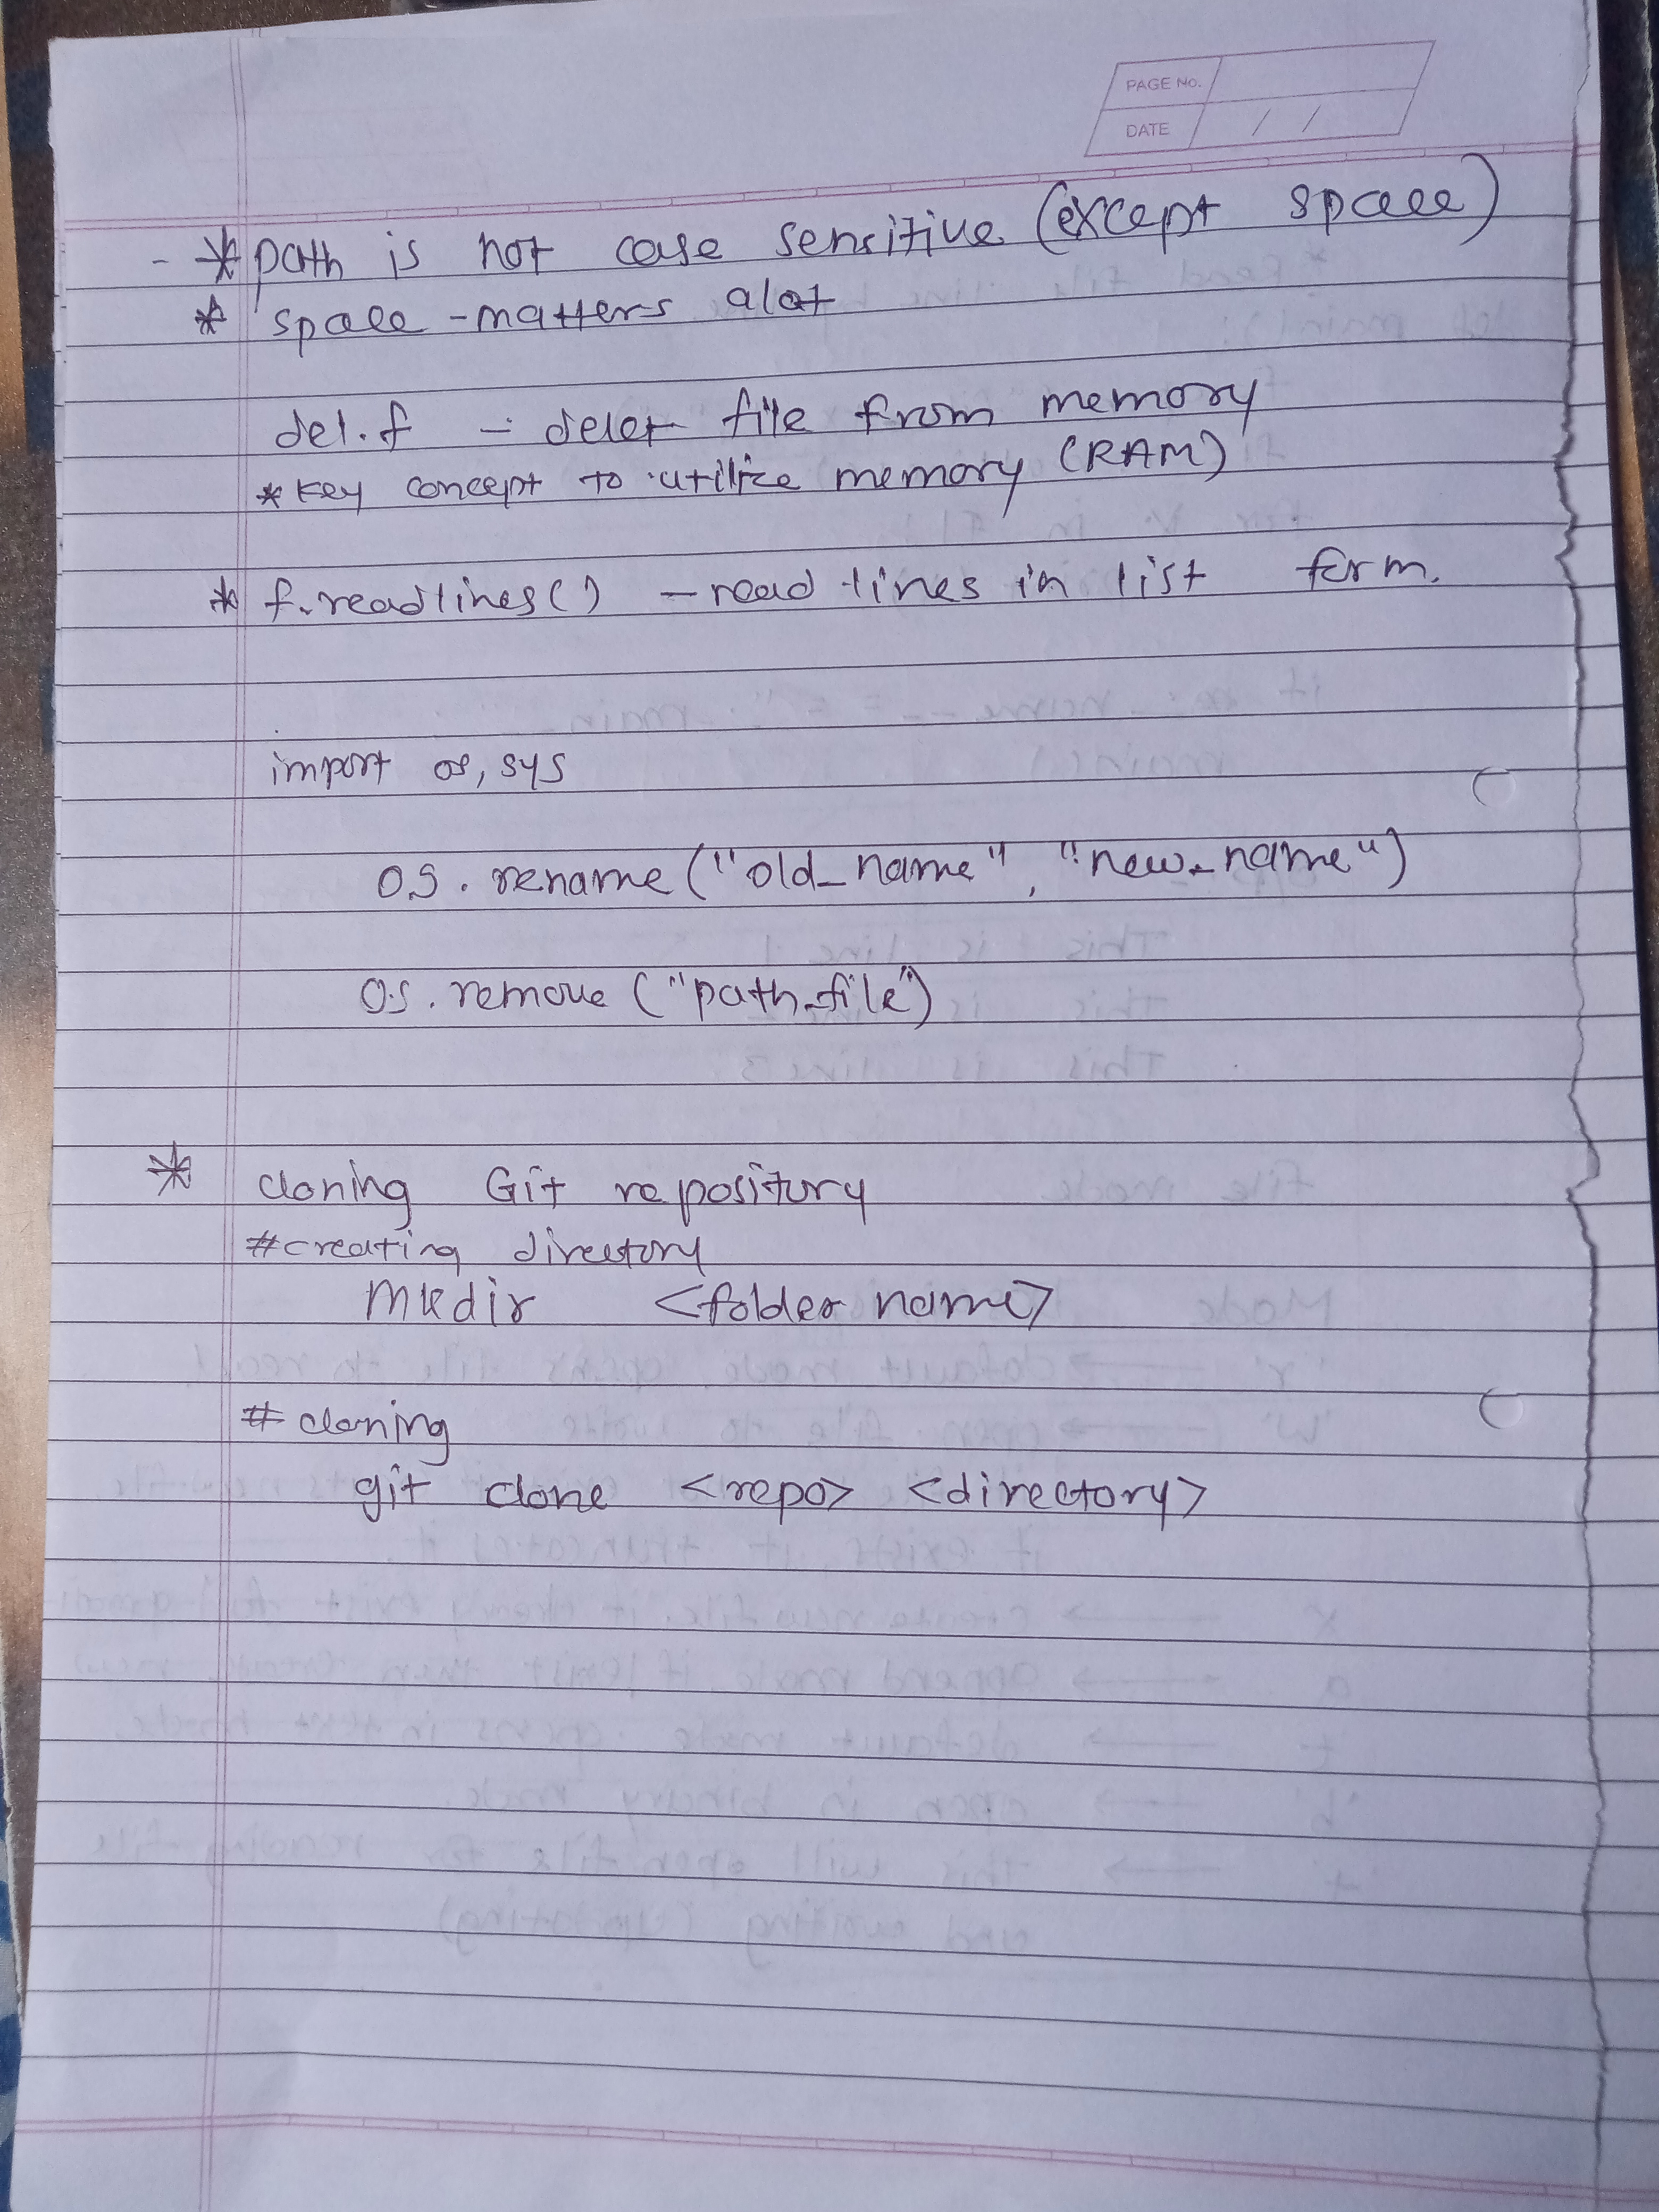 PAGE No.
DATE / /
- * path is not case sensitive (except space)
* space - matters alot
del.f - delet file from memory
* key concept to utilize memory (RAM)
* f.readlines() - read lines in list form.
import os, sys
os.rename("old_name", "new_name")
os.remove("path_file")
* cloning Git repository
#creating directory
mkdir <folder name>
# cloning
git clone <repo> <directory>